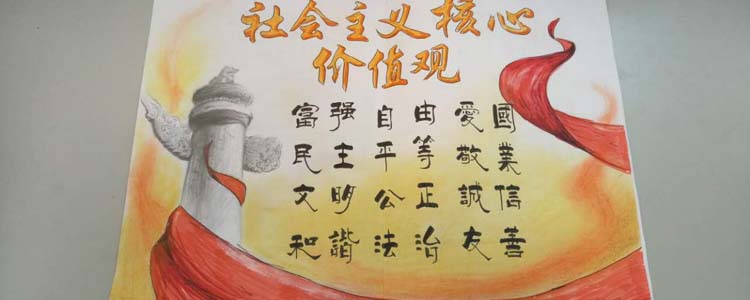 社会主义核心
价值观
富强 自由 愛國
民主 平等 敬業
文明 公正 誠信
和諧 法治 友善